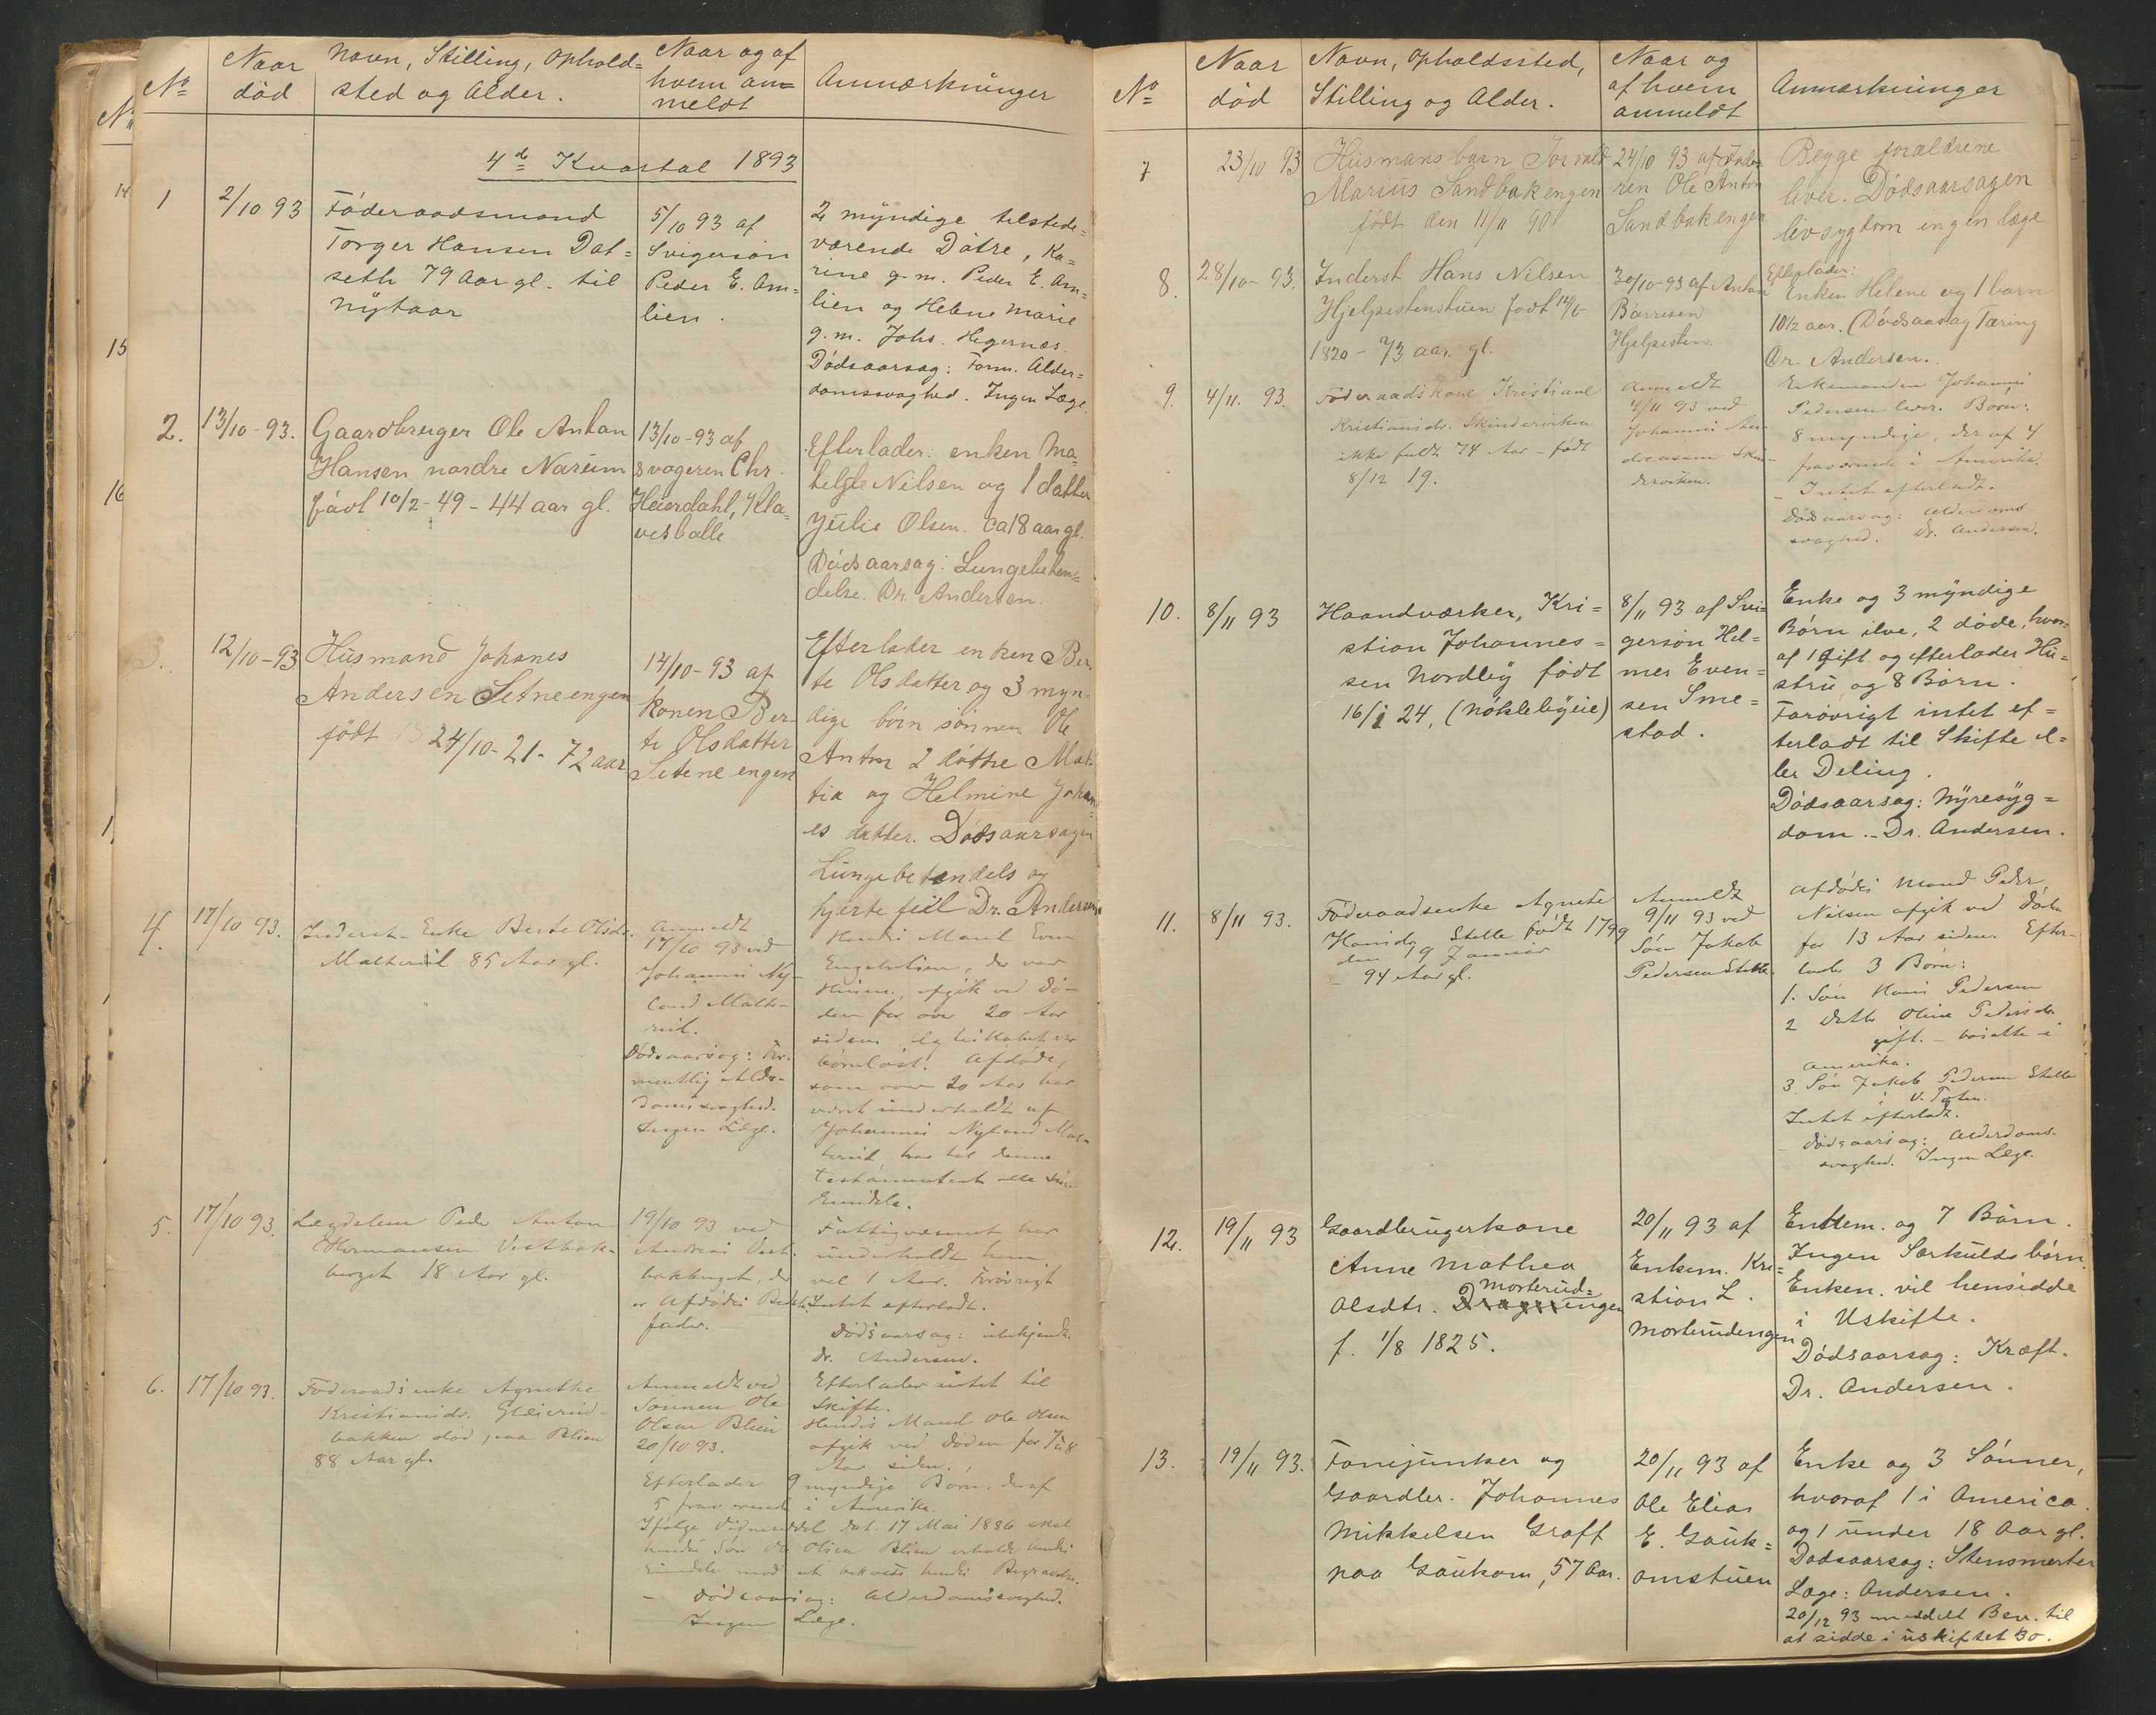 No
Naar
død
Navn, Stilling, Ophold=
sted og Alder.
Naar og af
hvem an=
meldt
Anmærkninger
4de Kvartal 1893
1
2/10 93
Föderaadsmand
Torger Hansen Dal=
seth 79 Aar gl. til
nytaar
5/10 93 af
Svigersön
Peder E. Am=
lien.
2 myndige tilstede=
værende Dötre, Ka=
rine g.m. Peder E. Am=
lien og Helene Marie
g.m. Johs. Hegernæs.
Dödsaarsag: Form. Alder=
domssvaghed. Ingen Læge.
2.
13/10-93.
Gaardbruger Ole Anton
Hansen nordre Narum
född 10/2-49 - 44 aar gl.
13/10-93 af
svogeren Chr.
Heierdahl, Kla=
vesballe
Efterlader: enken Ma=
thilde Nilsen og 1 datter
Julie Olsen. ca 18 aar gl.
Dödsaarsag: Lungebeten=
delse. Dr. Andersen.
3.
12/10-93
Husmand Johanes
Andersen Setneengen
födt 24/10-21- 72 aar
14/10-93 af
Konen Ber-
te Olsdatter
Setneengen
Efterlater enken Ber-
te Olsdatter og 3 myn-
dige börn sönnen Ole
Anton 2 döttre Mat-
tia og Helmine Johan=
es datter. Dödsaarsagen
Lungebetendels og
hjerte feil Dr. Andersen
4.
17/10 93.
Inderst-Enke Berte Olsdr.
Malterud 85 Aar gl.
Anmeldt
17/10 93 ved
Johannes Ny-
land Malte-
rud.
Dödsaarsag: For-
mentlig Alder-
domssvaghed.
Ingen Læge.
Hendes Mand Even
Engebretsen, der var
Husm., afgik ved Dö-
den for over 20 Aar
siden. Ægteskabet var
börnlöst. Afdöde,
som over 20 Aar har
været underholdt af
Johannes Nyland Mal-
terud, har til denne
testamenteret alle sine
Eiendele.
5.
17/10 93.
Lægdslem Peder Anton
Hermansen Vestbak-
berget 18 Aar gl.
19/10 93 ved
Andreas Vest-
bakberget, der
er Afdödes Bedste-
fader.
Fattigvæsenet har
underholdt ham
vel 1 Aar. Forövrigt
Intet efterladt.
Dödsaarsag: ubekjendt.
Dr. Andersen.
6.
17/10 93.
Föderaadsenke Agnethe
Kristiansdr. Gleierud-
bakken död paa Blien
88 Aar gl.
Anmeldt ved
Sönnen Ole
Olsen Blien
20/10 93.
Efterlader intet til
Skifte.
Hendes Mand Ole Olsen
afgik ved Döden for 7 a 8
Aar siden.
Efterlader 9 myndige Börn, deraf
5 fraværende i Amerika.
Ifölge Vidnemeddel dat. 17 Mai 1886 skal
hendes Sön Ole Olsen Blien erholde hendes
Eiendele mod at bekoste hendes Begravelse.
- Dödsaarsag: Alderdomssvaghed.
Ingen Læge.
No
Naar
död
Navn, Opholdssted,
Stilling og Alder.
Naar og
af hvem
anmeldt
Anmærkninger
7
23/10 93
Husmansbarn Torvald
Marius Sandbakengen
födt den 11/11 90
24/10 93 af Fade-
ren Ole Anton
Sandbakengen
Begge forældrene
liver. Dödsaarsagen
livsygdom ingen læge
8.
28/10-93.
Inderst Hans Nilsen
Hjelpestenstuen födt 14/6
1820 - 73 aar gl.
30/10-93 af Anton
Börresen
Hjelpesten
Efterlader:
Enken Helene og 1 barn
10 1/2 aar. (Dödsaarsag Tæring
Dr. Andersen.
9.
4/11. 93.
Föderaadskone Kristiane
Kristiansdr. Skinderviken
ikke fuldt 74 Aar - födt
8/12 19.
Anmeldt
4/11 93 ved
Johannes An-
dreassen Skin-
derviken.
Enkemanden Johannes
Pedersen lever. Börn:
8 myndige, der af 4
fraværende i Amerika.
- Intet efterladt.
- Dödsaarsag: Alderdoms-
svaghed. Dr. Andersen.
10.
8/11 93
Haandværker, Kri=
stian Johannes=
sen Nordby födt
16/1 24, (Nöklebyeie)
8/11 93 af Svi=
gersön Hel=
mer Even=
sen Sme=
stad.
Enke og 3 myndige
Börn ilve, 2 döde, hvor-
af 1 gift og efterlader Hu=
stru og 8 Börn.
Forövrigt intet ef=
terladt til Skifte el=
ler Deling.
Dödsaarsag: Nyresyg=
dom. - Dr. Andersen.
11.
8/11 93.
Föderaadsenke Agnete
Hansdr. Stelle födt 1799
den 19 Januar
- 94 Aar gl.
Anmeldt
9/11 93 ved
Sön Jakob
Pedersen Stelle.
Afdödes Mand Peder
Nilsen afgik ved Döden
for 13 Aar siden. Efter-
lader 3 Börn:
1. Sön Hans Pedersen
2 Datter Oline Pedersdr.
gift. - bosatte i
Amerika.
3. Sön Jakob Pedersen Stelle
i V. Toten.
Intet efterladt.
- Dödsaarsag: Alderdoms-
svaghed. Ingen Læge.
12.
19/11 93
Gaardbrugerkone
Anne Mathea
Morterud=
Olsdtr. Dragerengen
f. 1/8 1825.
20/11 93 af
Enkem. Kri=
stian L.
Morterudengen
Enkem. og 7 Börn.
Ingen Særkuldsbörn.
Enkem. vil hensidde
i Uskifte.
Dödsaarsag: Kræft.
Dr. Andersen.
13.
19/11 93.
Fanejunker og
Gaardbr. Johannes
Mikkelsen Graff
paa Gaukom, 57 Aar.
20/11 93 af
Ole Elias
E. Gauk=
omstuen
Enke og 3 Sönner,
hvoraf 1 i America
og 1 under 18 Aar gl.
Dödsaarsag: Stensmerter
Læge: Andersen.
20/12 93 meddelt Bev. til
at sidde i uskiftet Bo.